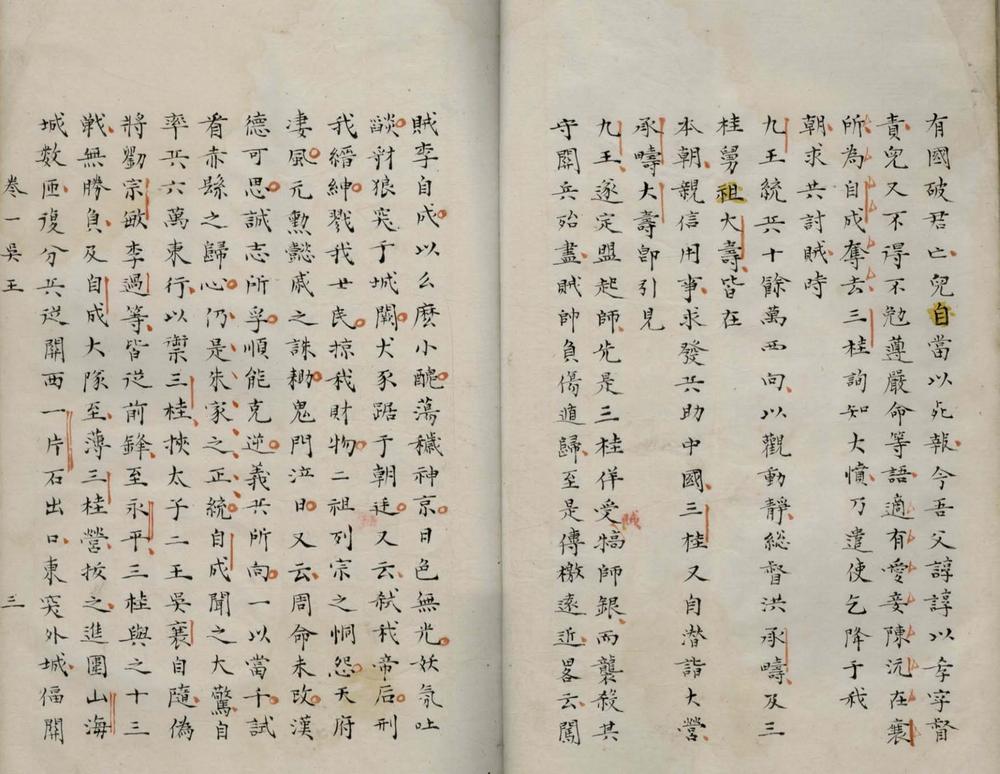 有國破君亡兒自當以死報今吾父諄諄以孝字督
責兒又不得不勉遵嚴命等語適有嗳妾陳沅在襄
所為自成奪去三桂詢知大憤乃遣使乞降于我
朝求共討賊時
九王統兵十餘萬西向以觀動靜總督洪承疇及三
桂舅祖大壽皆在
本朝親信用事求發兵助中國三桂又自潜詣大營
承疇大壽卽引見
九王遂定盟起師先是三桂佯受犒師銀而襲殺其
賊
守關兵殆盡賊帥負傷遁歸至是傳檄遠近畧云闖
賊李自成以么麼小醜蕩穢神京日色無光妖氛吐
燄豺狼突于城闕犬豕踞于朝廷又云弒我帝后刑
我縉紳戮我士民掠我財物二祖列宗之恫怨天府
凄風元勲懿戚之誅鋤鬼門泣日又云周命未改漢
德可思誠志所孚順能克逆義兵所向一以當千試
看赤縣之歸心仍是朱家之正統自成聞之大驚自
率兵六萬東行以禦三桂挾太子二王吳襄自隨偽
將劉宗敏李過等皆從前鋒至永平三桂與之十三
戰無勝負及自成大隊至薄三桂營拔之進圍山海
城数匝復分兵從關西一片石出口東突外城偪關
卷一 吳王 三